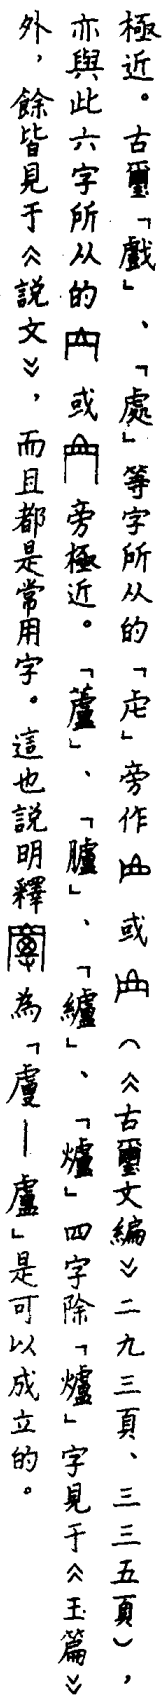 極近。古璽「戲」、「處」等字所从的「虍」旁作或(《古璽文編》二九三頁、三三五頁),
亦與此六字所从的或旁極近。「蘆」、「臚」、「纑」、「爐」四字除「爐」字見于《玉篇》
外,餘皆見于《説文》,而且都是常用字。這也説明釋為「虘—盧」是可以成立的。